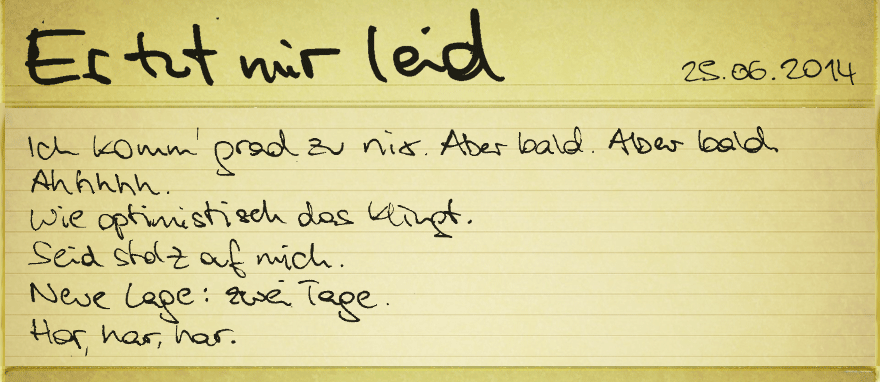 Es tut mir leid
25.06.2014
Ich komm' grad zu nix. Aber bald. Aber bald.
Ahhhhh.
Wie optimistisch das klingt.
Seid stolz auf mich.
Neue Lage: zwei Tage.
Har, har, har.